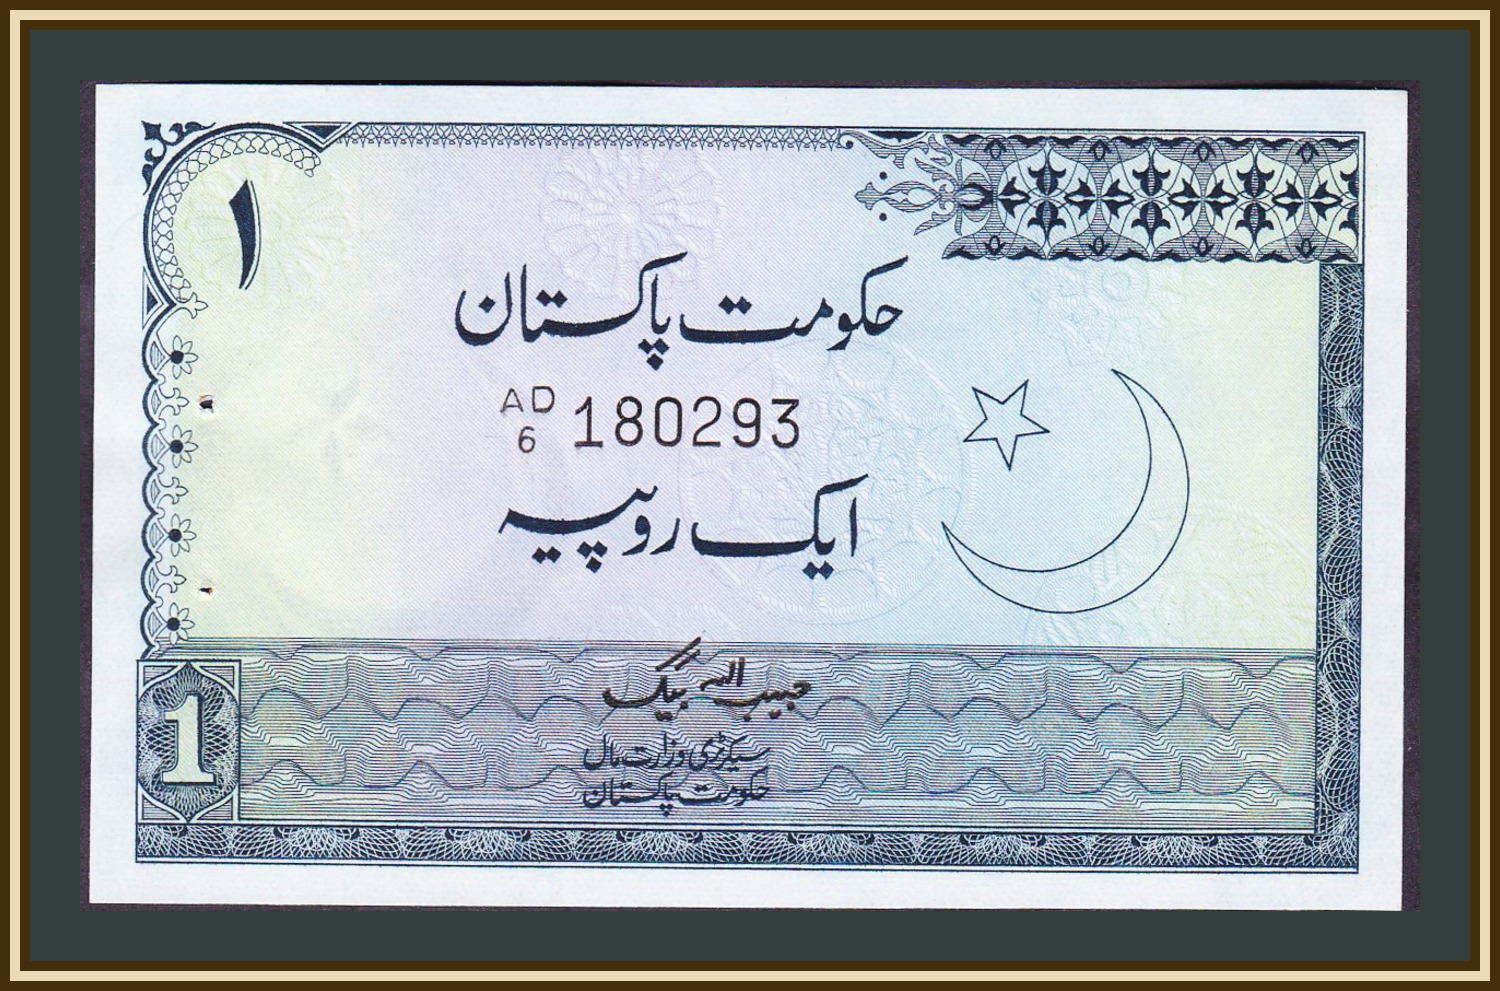 ۱
حکومت پاکستان
AD
6 180293
ایک روپیہ
حبیب اللہ بیگ
سیکرٹری وزارت مال
حکومت پاکستان
1